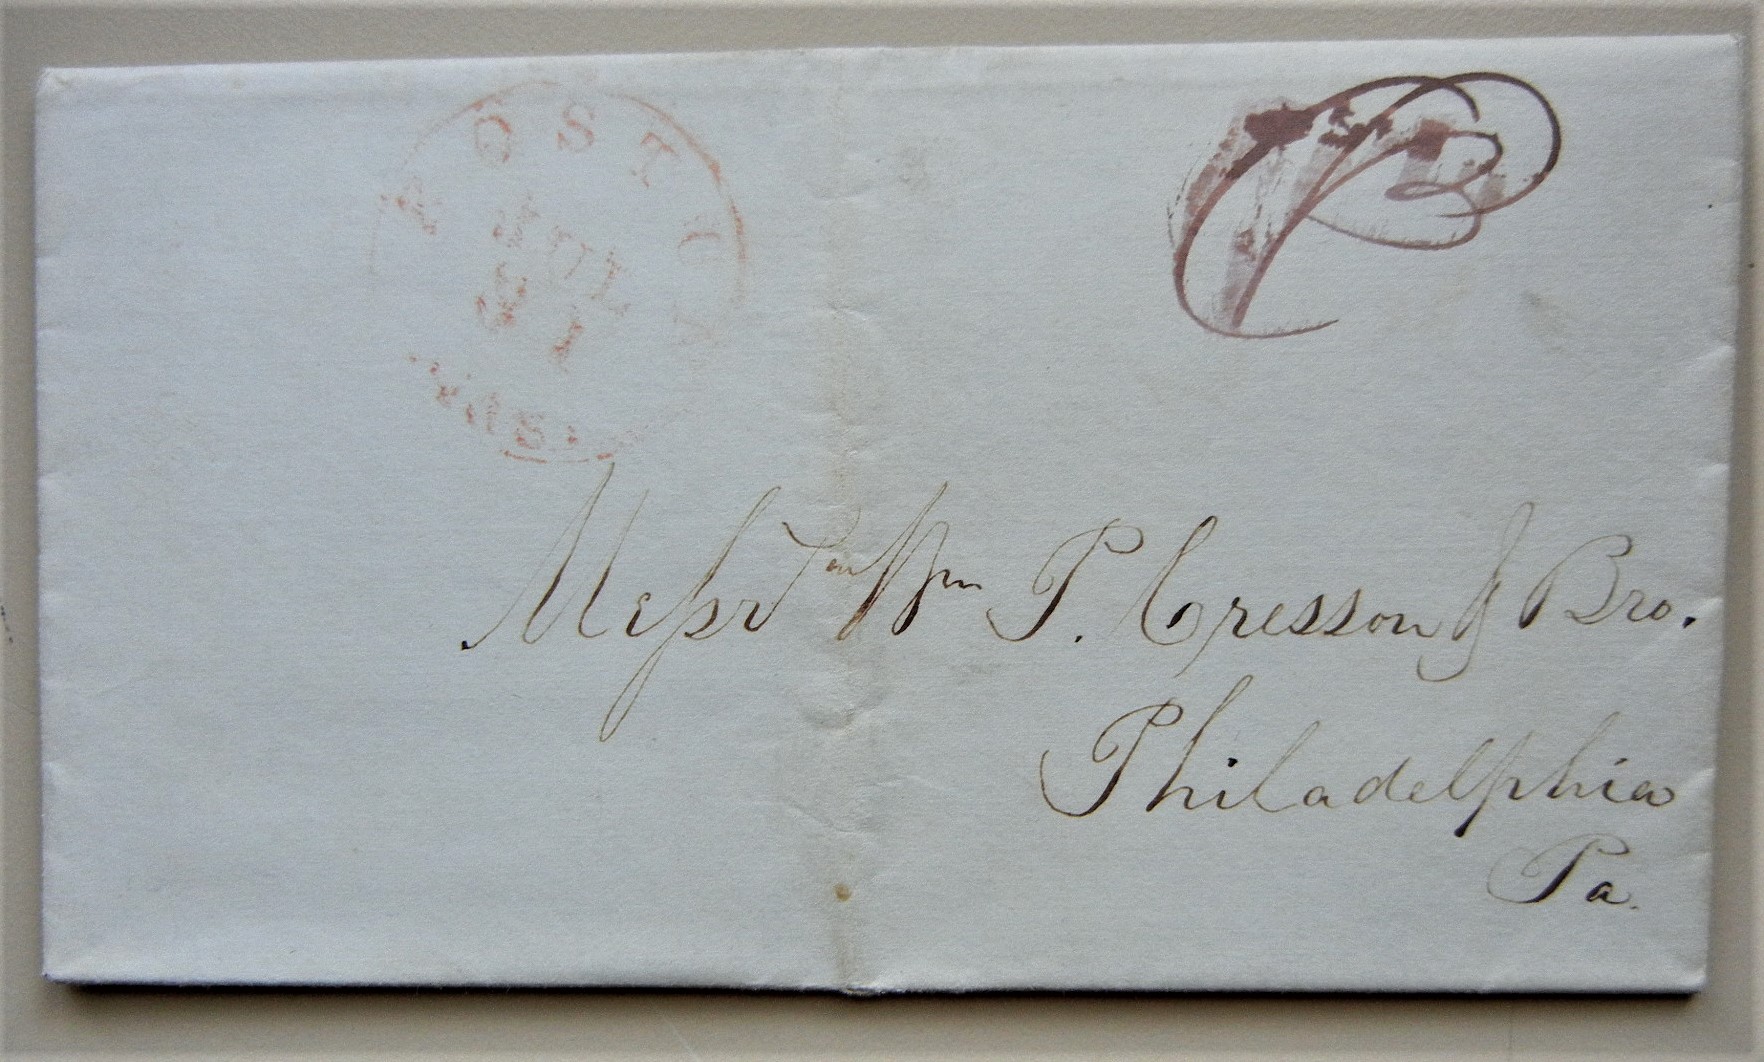 BOSTON
JUL
31
MAS.
Messrs Wm P. Cresson & Bro.
Philadelphia
Pa.